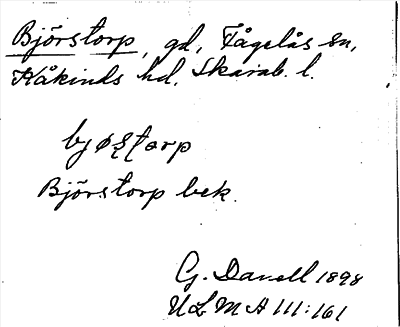 Björstorp, gd, Fågelås sn,
Kåkinds hd, Skarab. l.
bjøʂtɔrp
Björstorp bek.
G. Danell 1898
ULMA 111:161